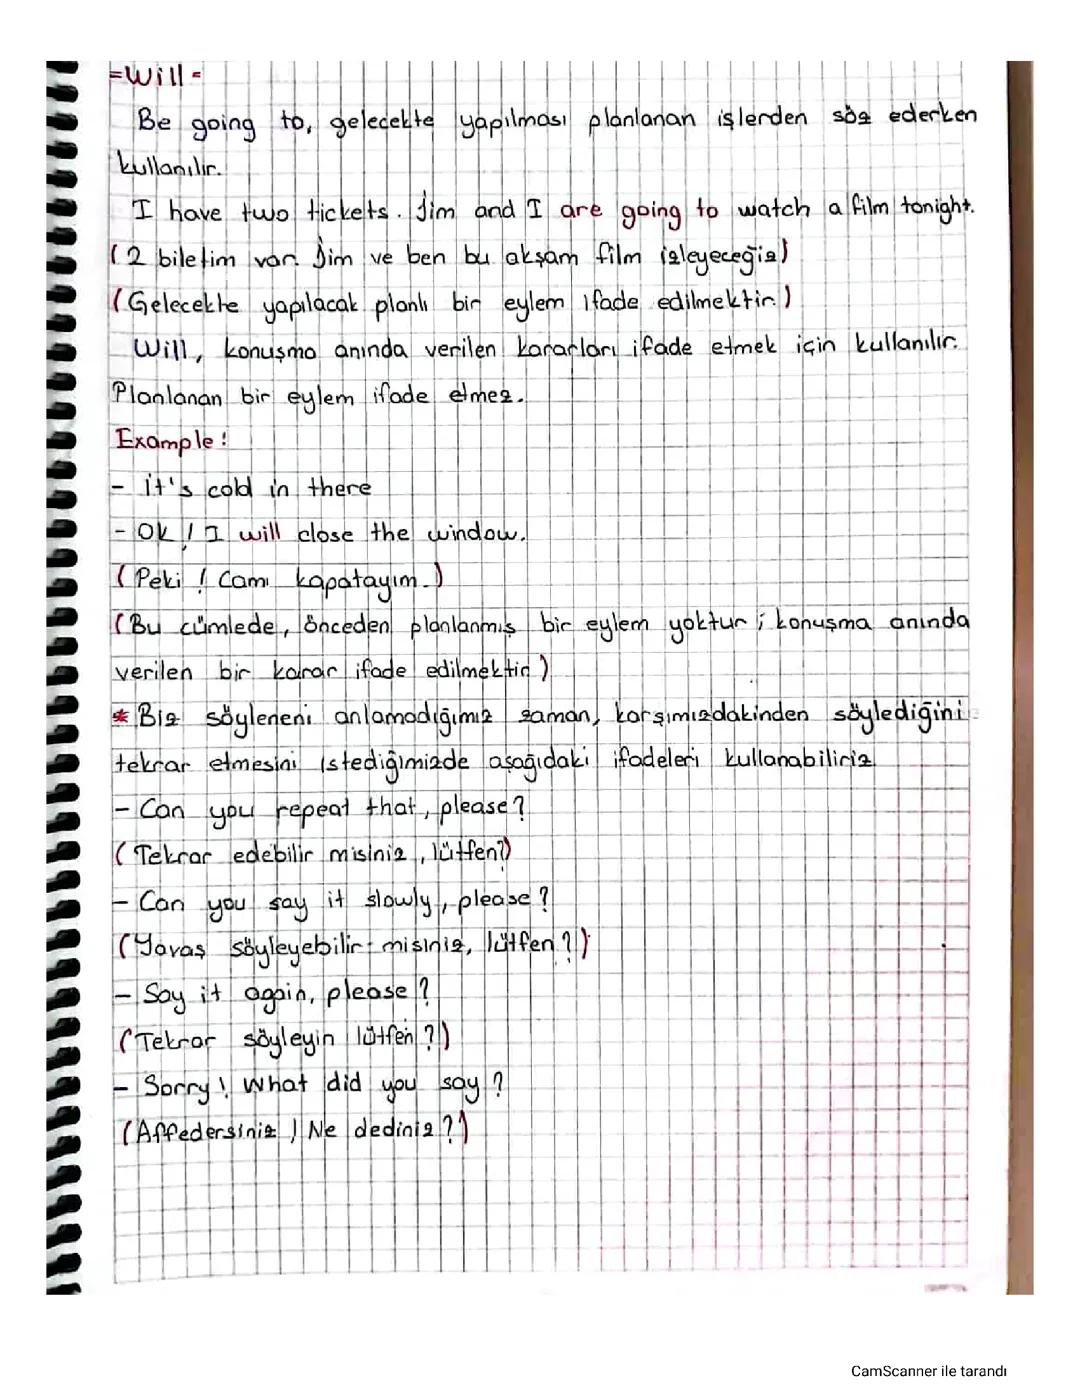 =Will=
Be going to, gelecekte yapılması planlanan işlerden söz ederken
kullanılır.
I have two tickets. Jim and I are going to watch a film tonight.
(2 biletim var. Jim ve ben bu akşam film izleyeceğiz)
(Gelecekte yapılacak planlı bir eylem ifade edilmektir.)
Will, konuşma anında verilen kararları ifade etmek için kullanılır.
Planlanan bir eylem ifade etmez.
Example:
- it's cold in there
- Ok! I will close the window.
(Peki! Camı kapatayım.)
(Bu cümlede, önceden planlanmış bir eylem yoktur; konuşma anında
verilen bir karar ifade edilmektir)
* Biz söyleneni anlamadığımız zaman, karşımızdakinden söylediğini
tekrar etmesini istediğimizde aşağıdaki ifadeleri kullanabiliriz.
- Can you repeat that, please?
(Tekrar edebilir misiniz, lütfen?)
- Can you say it slowly, please?
(Yavaş söyleyebilir misiniz, lütfen?)
- Say it again, please?
(Tekrar söyleyin lütfen?)
- Sorry! What did you say?
(Affedersiniz! Ne dediniz?)
CamScanner ile tarandı